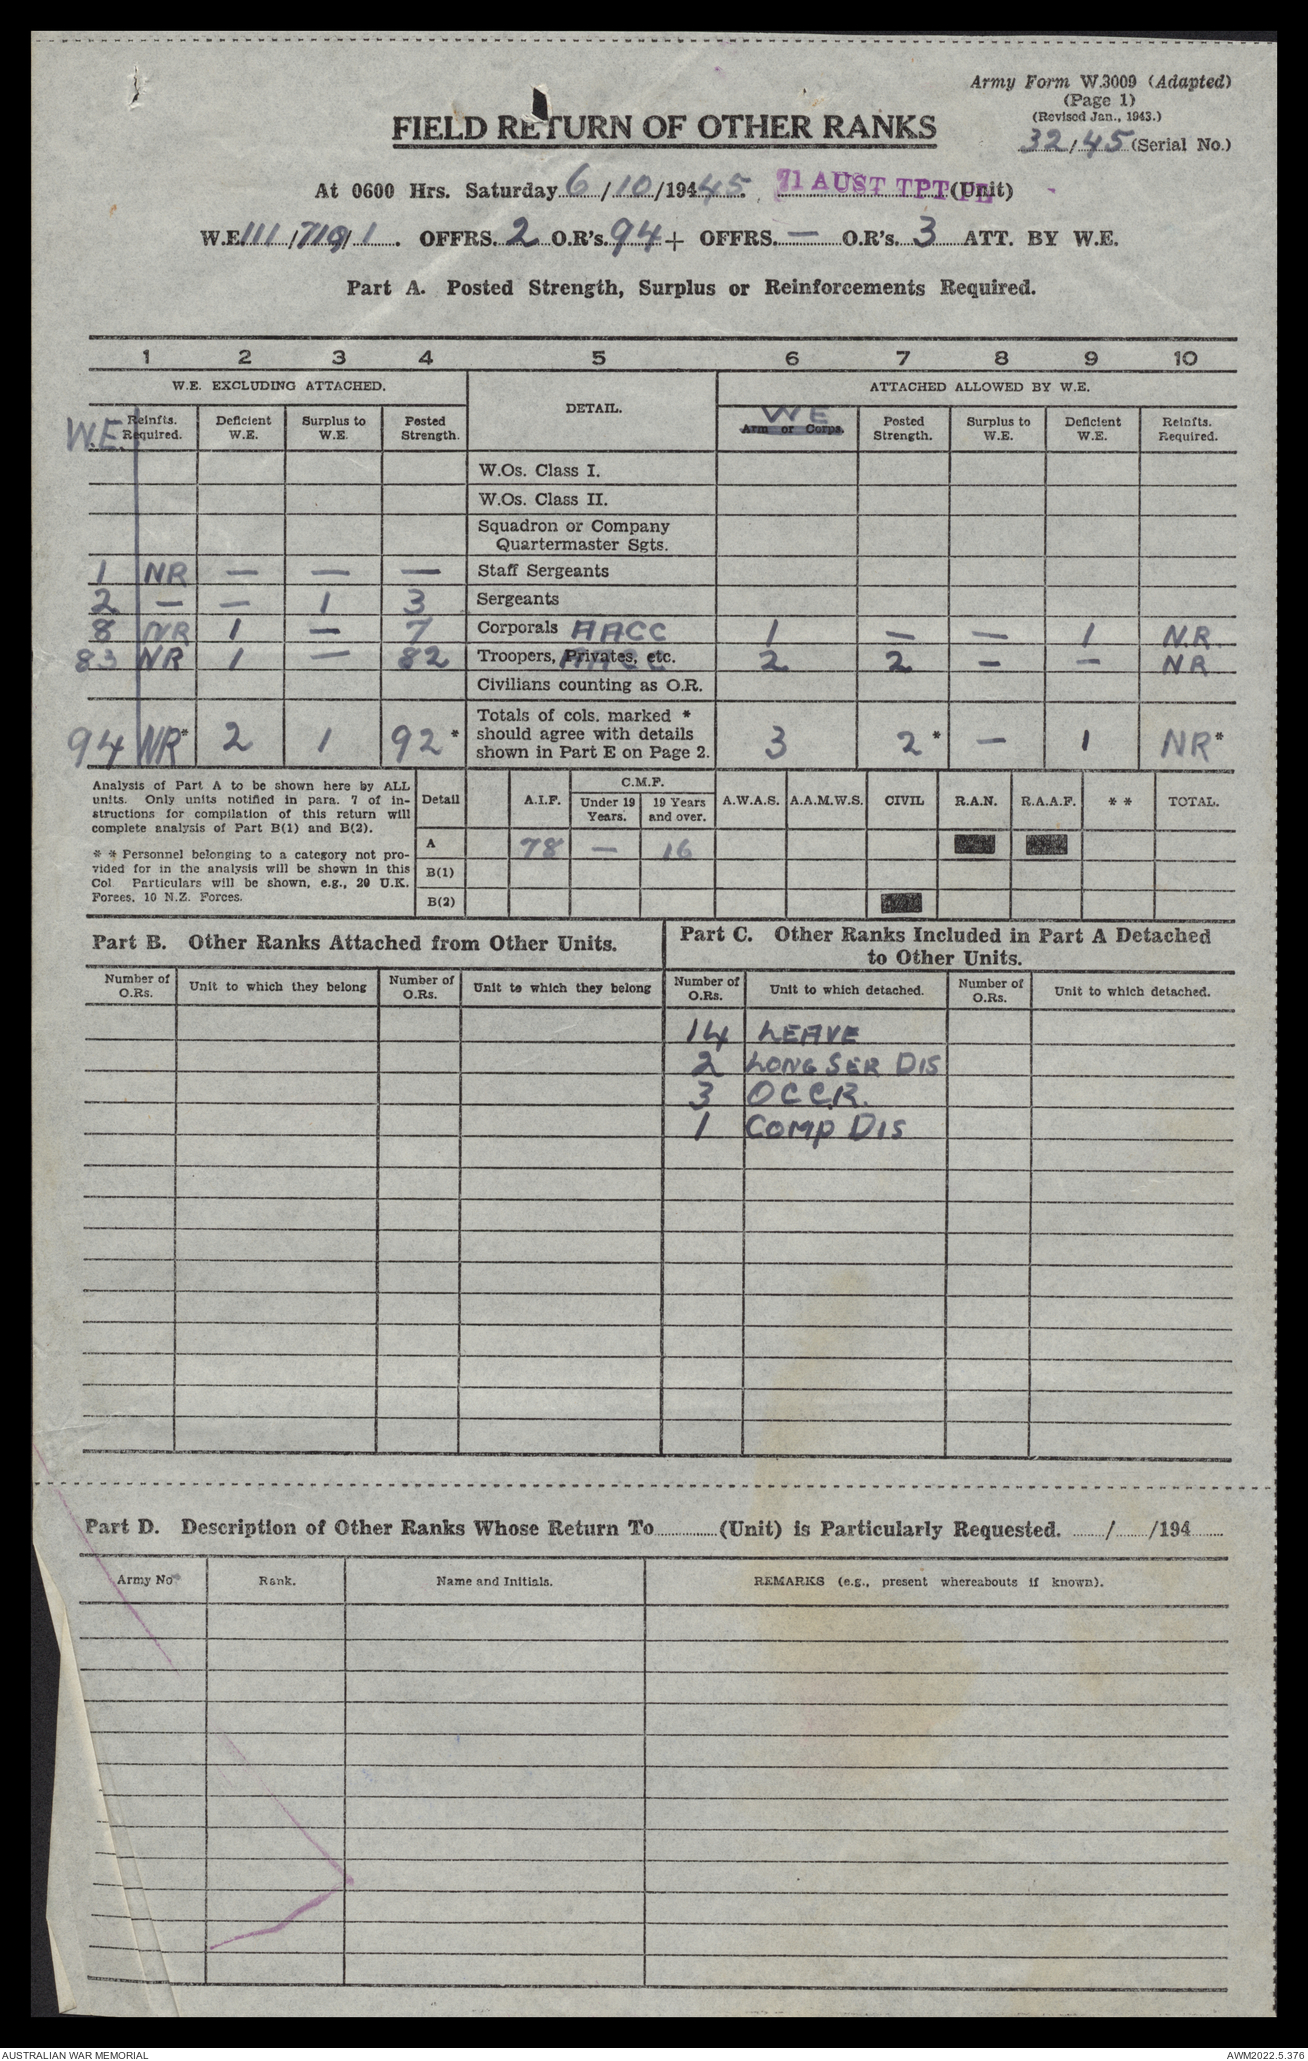 Army Form W.3009 (Adapted)
(Page 1)
(Revised Jan., 1943.)
32/45 (Serial No.)
FIELD RETURN OF OTHER RANKS
At 0600 Hrs. Saturday 6/10/1945. 71 AUST TPT PL (Unit)
W.E. 111/ /1. OFFRS. 2 O.R's. 94 + OFFRS. — O.R's. 3 ATT. BY W.E.
Part A. Posted Strength, Surplus or Reinforcements Required.
1 2 3 4 5 6 7 8 9 10
W.E. EXCLUDING ATTACHED. DETAIL. ATTACHED ALLOWED BY W.E.
W.E. Reinfts. Required. Deficient W.E. Surplus to W.E. Posted Strength. WE Arm or Corps. Posted Strength. Surplus to W.E. Deficient W.E. Reinfts. Required.
W.Os. Class I.
W.Os. Class II.
Squadron or Company
Quartermaster Sgts.
1 NR — — — Staff Sergeants
2 — — 1 3 Sergeants
8 NR 1 — 7 Corporals AACC 1 — — 1 N.R
83 NR 1 — 82 Troopers, Privates, etc. 2 2 — — NR
Civilians counting as O.R.
94 NR* 2 1 92* Totals of cols. marked * should agree with details shown in Part E on Page 2. 3 2* — 1 NR*
Analysis of Part A to be shown here by ALL
units. Only units notified in para. 7 of in-
structions for compilation of this return will
complete analysis of Part B(1) and B(2).
* * Personnel belonging to a category not pro-
vided for in the analysis will be shown in this
Col. Particulars will be shown, e.g., 20 U.K.
Forces, 10 N.Z. Forces.
Detail A.I.F. C.M.F. Under 19 Years. 19 Years and over. A.W.A.S. A.A.M.W.S. CIVIL R.A.N. R.A.A.F. * * TOTAL.
A 78 — 16
B(1)
B(2)
Part B. Other Ranks Attached from Other Units.
Part C. Other Ranks Included in Part A Detached
to Other Units.
Number of O.Rs. Unit to which they belong Number of O.Rs. Unit to which they belong Number of O.Rs. Unit to which detached. Number of O.Rs. Unit to which detached.
14 LEAVE
2 LONG SER DIS
3 OCCR.
1 COMP DIS
Part D. Description of Other Ranks Whose Return To (Unit) is Particularly Requested. / /194
Army No Rank. Name and Initials. REMARKS (e.g., present whereabouts if known).
AUSTRALIAN WAR MEMORIAL AWM2022.5.376